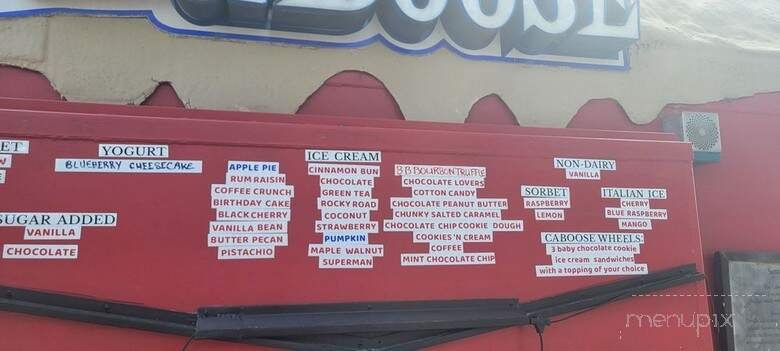 BOOSE
YOGURT
BLUEBERRY CHEESECAKE
SUGAR ADDED
VANILLA
CHOCOLATE
ICE CREAM
APPLE PIE
RUM RAISIN
COFFEE CRUNCH
BIRTHDAY CAKE
BLACK CHERRY
VANILLA BEAN
BUTTER PECAN
PISTACHIO
CINNAMON BUN
CHOCOLATE
GREEN TEA
ROCKY ROAD
COCONUT
STRAWBERRY
PUMPKIN
MAPLE WALNUT
SUPERMAN
BB BOURBON TRUFFLE
CHOCOLATE LOVERS
COTTON CANDY
CHOCOLATE PEANUT BUTTER
CHUNKY SALTED CARAMEL
CHOCOLATE CHIP COOKIE DOUGH
COOKIES'N CREAM
COFFEE
MINT CHOCOLATE CHIP
NON-DAIRY
VANILLA
SORBET
RASPBERRY
LEMON
ITALIAN ICE
CHERRY
BLUE RASPBERRY
MANGO
CABOOSE WHEELS
3 baby chocolate cookie
ice cream sandwiches
with a topping of your choice
menupix